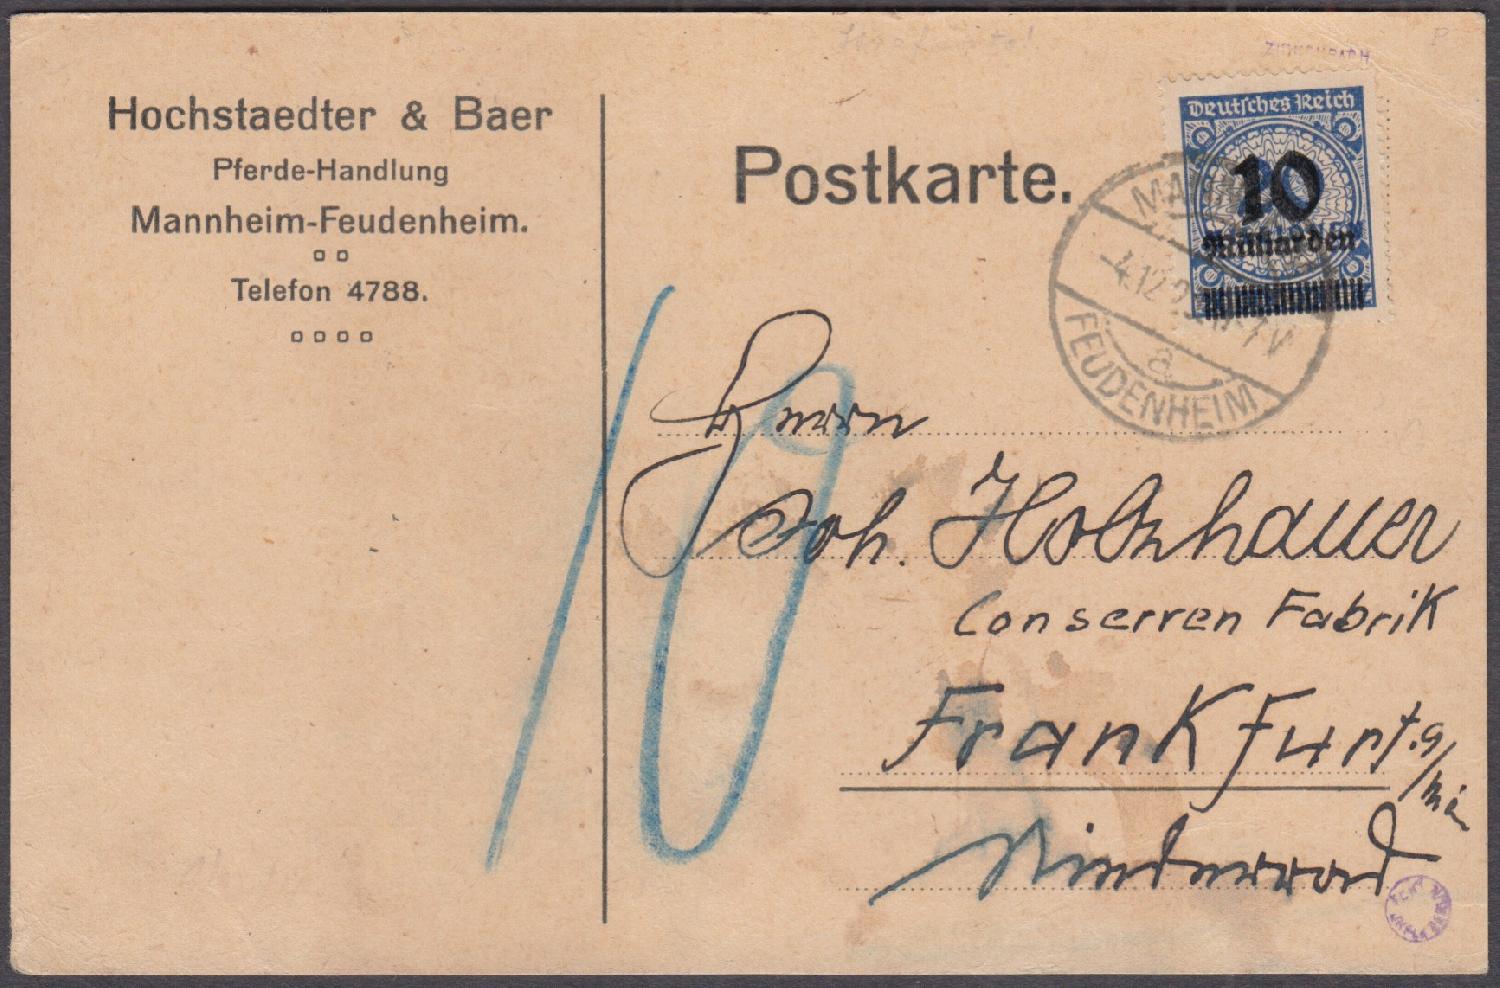 Hochstaedter & Baer
Pferde-Handlung
Mannheim-Feudenheim.
Telefon 4788.
Postkarte.
Deutsches Reich
10
Milliarden
-4.12.23. 6-7V
a
FEUDENHEIM
10
Herrn
Joh. Holzhauer
Conserven Fabrik
Frankfurt. a/
Niederwad